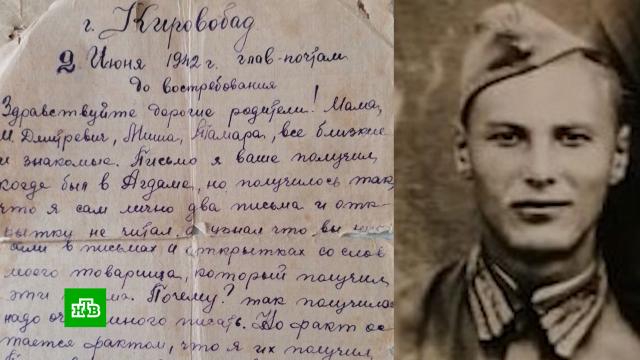 г. Кировобад
2 Июня 1942 г. глав-почтам
до востребования
Здравствуйте дорогие родители! Мама,
М. Дмитревич, Миша, Тамара, все близкие
и знакомые. Письмо я ваше получил
когда был в Агдаме, но получилось так,
что я сам лично два письма и отк-
рытку не читал, а узнал что вы
в письмах и открытках со слов
моего товарища, который получил
эти Почему? так получилось
надо много писать. Но факт ос-
тается фактом, что я их получил
НТВ